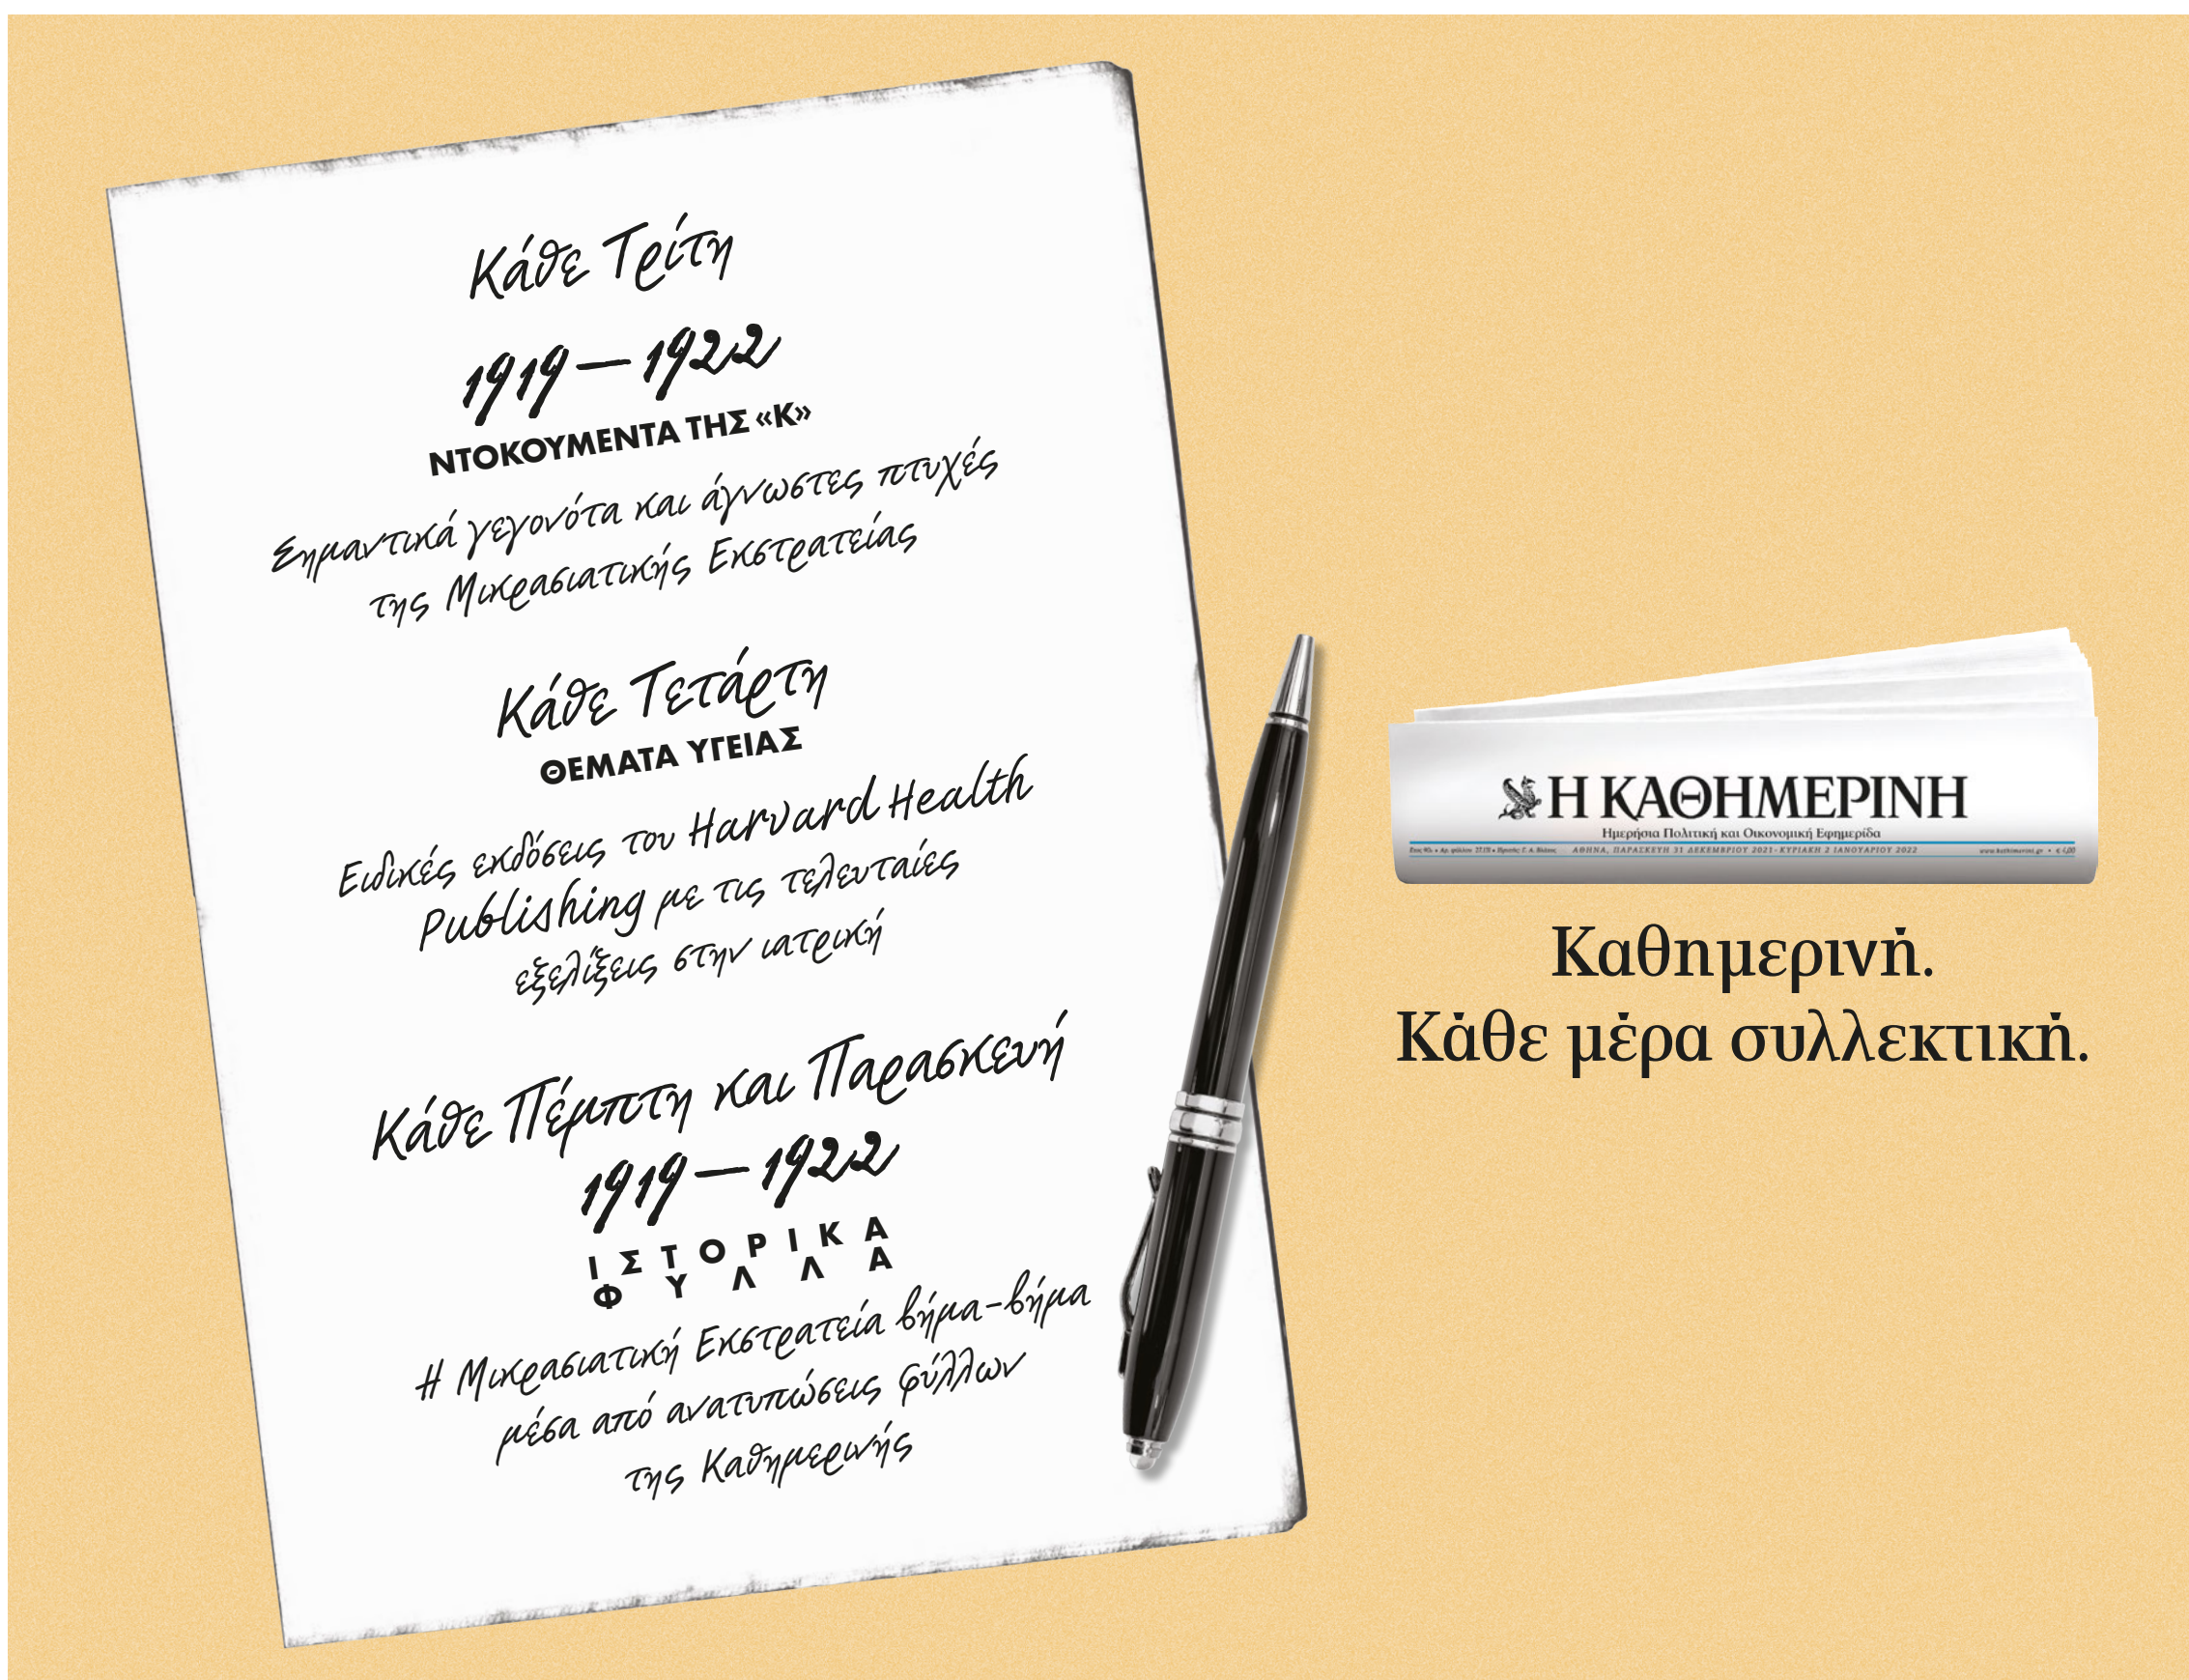 Κάθε Τρίτη
1919 – 1922
ΝΤΟΚΟΥΜΕΝΤΑ ΤΗΣ «Κ»
Σημαντικά γεγονότα και άγνωστες πτυχές
της Μικρασιατικής Εκστρατείας
Κάθε Τετάρτη
ΘΕΜΑΤΑ ΥΓΕΙΑΣ
Ειδικές εκδόσεις του Harvard Health
Publishing με τις τελευταίες
εξελίξεις στην ιατρική
Κάθε Πέμπτη και Παρασκευή
1919 – 1922
ΙΣΤΟΡΙΚΑ
ΦΥΛΛΑ
Η Μικρασιατική Εκστρατεία βήμα-βήμα
μέσα από ανατυπώσεις φύλλων
της Καθημερινής
Η ΚΑΘΗΜΕΡΙΝΗ
Ημερήσια Πολιτική και Οικονομική Εφημερίδα
ΑΘΗΝΑ, ΠΑΡΑΣΚΕΥΗ 31 ΔΕΚΕΜΒΡΙΟΥ 2021 - ΚΥΡΙΑΚΗ 2 ΙΑΝΟΥΑΡΙΟΥ 2022 www.kathimerini.gr
Καθημερινή.
Κάθε μέρα συλλεκτική.